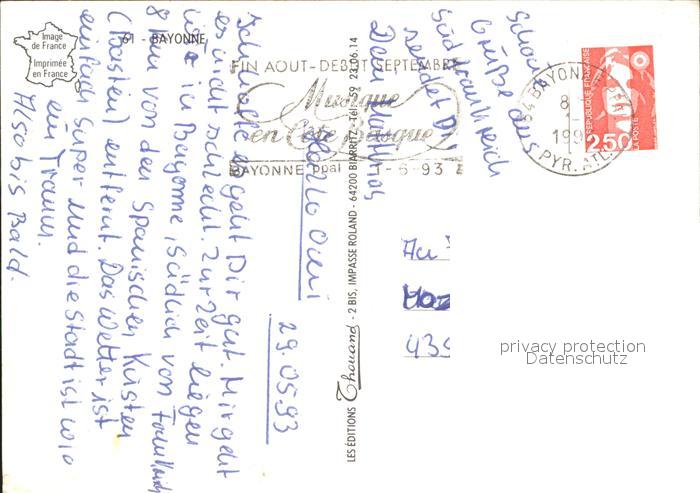 Image
de France
Imprimée
en France
61 - BAYONNE
29.05.93
Hallo Omi
Ich hoffe es geht Dir gut. Mir geht
es nicht schlecht. Zur Zeit liegen
in Bayonne, südlich von Frankreich
8 km von den Spanischen Küsten
entfernt. Das Wetter ist
einfach super und die Stadt ist wie
ein Traum.
Also bis Bald.
Schöne
Grüße aus
Südfrankreich
sendet Dir
Dein
LES ÉDITIONS Thouand - 2 BIS, IMPASSE ROLAND - 64200 BIARRITZ - Tél. 59 23.06.14
FIN AOUT-DEBUT SEPTEMBRE
Musique
en Côte Basque
BAYONNE ppal 1-6-93
64 BAYONNE
8
1
199
PYR. ATL.
REPUBLIQUE FRANÇAISE
2,50
LA POSTE
privacy protection
Datenschutz